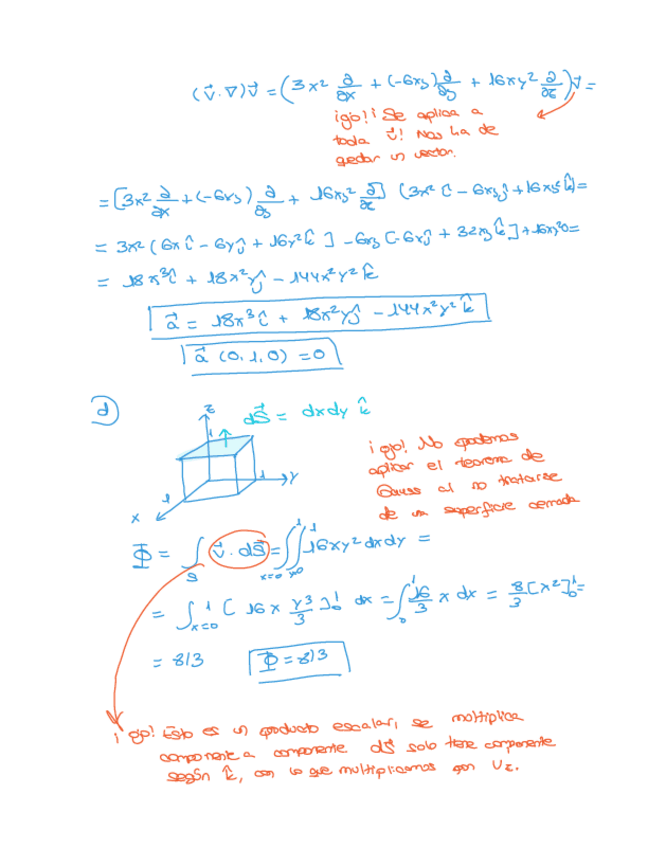 (v⃗·∇)v⃗ = (3x² ∂/∂x + (-6xy) ∂/∂y + 16xy² ∂/∂z) v⃗ =
¡ojo!¡ Se aplica a
toda v⃗! Nos ha de
quedar un vector.
= [3x² ∂/∂x + (-6xy) ∂/∂y + 16xy² ∂/∂z] (3x² î - 6xy ĵ + 16xy² k̂) =
= 3x² (6x î - 6y ĵ + 16y² k̂) - 6xy [-6x ĵ + 32xy k̂] + 16xy² 0 =
= 18x³ î + 18x²y ĵ - 144x²y² k̂
a⃗ = 18x³ î + 18x²y ĵ - 144x²y² k̂
a⃗ (0,1,0) = 0
d)
z
dS⃗ = dxdy k̂
1
1
y
1
x
¡ojo! No podemos
aplicar el teorema de
Gauss al no tratarse
de una superficie cerrada
Φ = ∫_S v⃗·dS⃗ = ∫_{x=0}^1 ∫_{y=0}^1 16xy² dxdy =
= ∫_{x=0}^1 [16x y³/3]_0^1 dx = ∫_0^1 16/3 x dx = 8/3 [x²]_0^1 =
= 8/3 Φ = 8/3
¡ojo! Esto es un producto escalar, se multiplica
componente a componente. dS⃗ solo tiene componente
según k̂, con lo que multiplicamos por v_z.